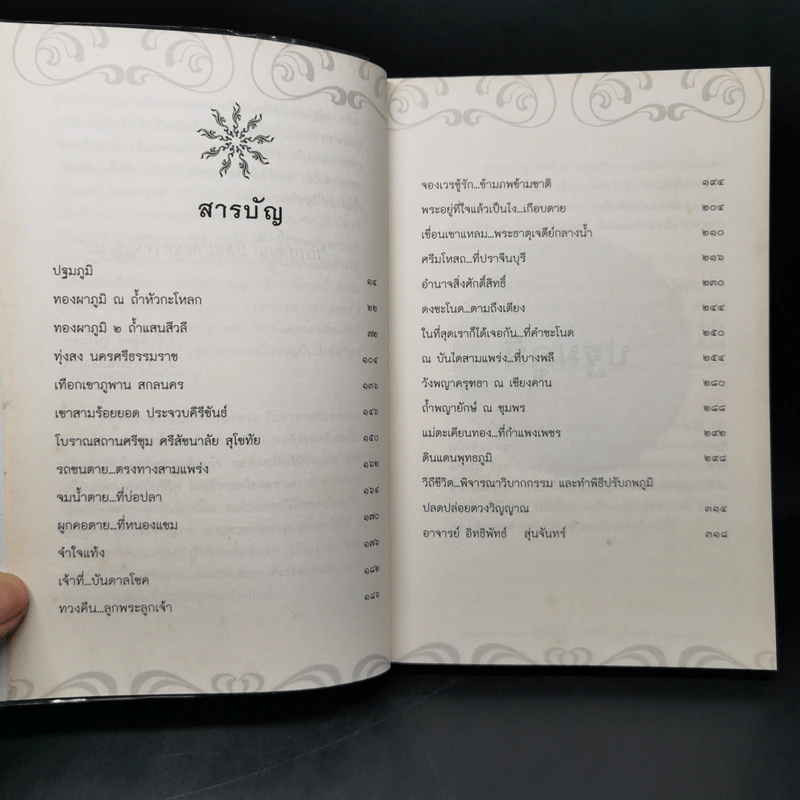 สารบัญ
ปฐมภูมิ ๑๔
ทองผาภูมิ ณ ถ้ำหัวกะโหลก ๒๒
ทองผาภูมิ ๒ ถ้ำแสนสีวลี ๗๒
ทุ่งสง นครศรีธรรมราช ๑๐๔
เทือกเขาภูพาน สกลนคร ๑๓๖
เขาสามร้อยยอด ประจวบคีรีขันธ์ ๑๔๖
โบราณสถานศรีชุม ศรีสัชนาลัย สุโขทัย ๑๕๐
รถชนตาย...ตรงทางสามแพร่ง ๑๖๒
จมน้ำตาย...ที่บ่อปลา ๑๖๔
ผูกคอตาย...ที่หนองแขม ๑๗๐
จำใจแท้ง ๑๗๖
เจ้าที่...บันดาลโชค ๑๘๒
ทวงคืน...ลูกพระลูกเจ้า ๑๘๖
จองเวรชู้รัก...ข้ามภพข้ามชาติ ๑๙๔
พระอยู่ที่ใจแล้วเป็นไง...เกือบตาย ๒๐๔
เขื่อนเขาแหลม...พระธาตุเจดีย์กลางน้ำ ๒๑๐
ศรีมโหสถ...ที่ปราจีนบุรี ๒๑๖
อำนาจสิ่งศักดิ์สิทธิ์ ๒๓๐
ดงชะโนด...ตามถึงเตียง ๒๔๔
ในที่สุดเราก็ได้เจอกัน...ที่คำชะโนด ๒๕๐
ณ บันไดสามแพร่ง...ที่บางพลี ๒๕๔
วังพญาครุฑธา ณ เชียงคาน ๒๘๐
ถ้ำพญายักษ์ ณ ชุมพร ๒๘๘
แม่ตะเคียนทอง...ที่กำแพงเพชร ๒๙๒
ดินแดนพุทธภูมิ ๒๙๘
วิถีชีวิต...พิจารณาวิบากกรรม และทำพิธีปรับภพภูมิ
ปลดปล่อยดวงวิญญาณ ๓๑๔
อาจารย์ อิทธิพัทธ์ สุ่นจันทร์ ๓๑๘